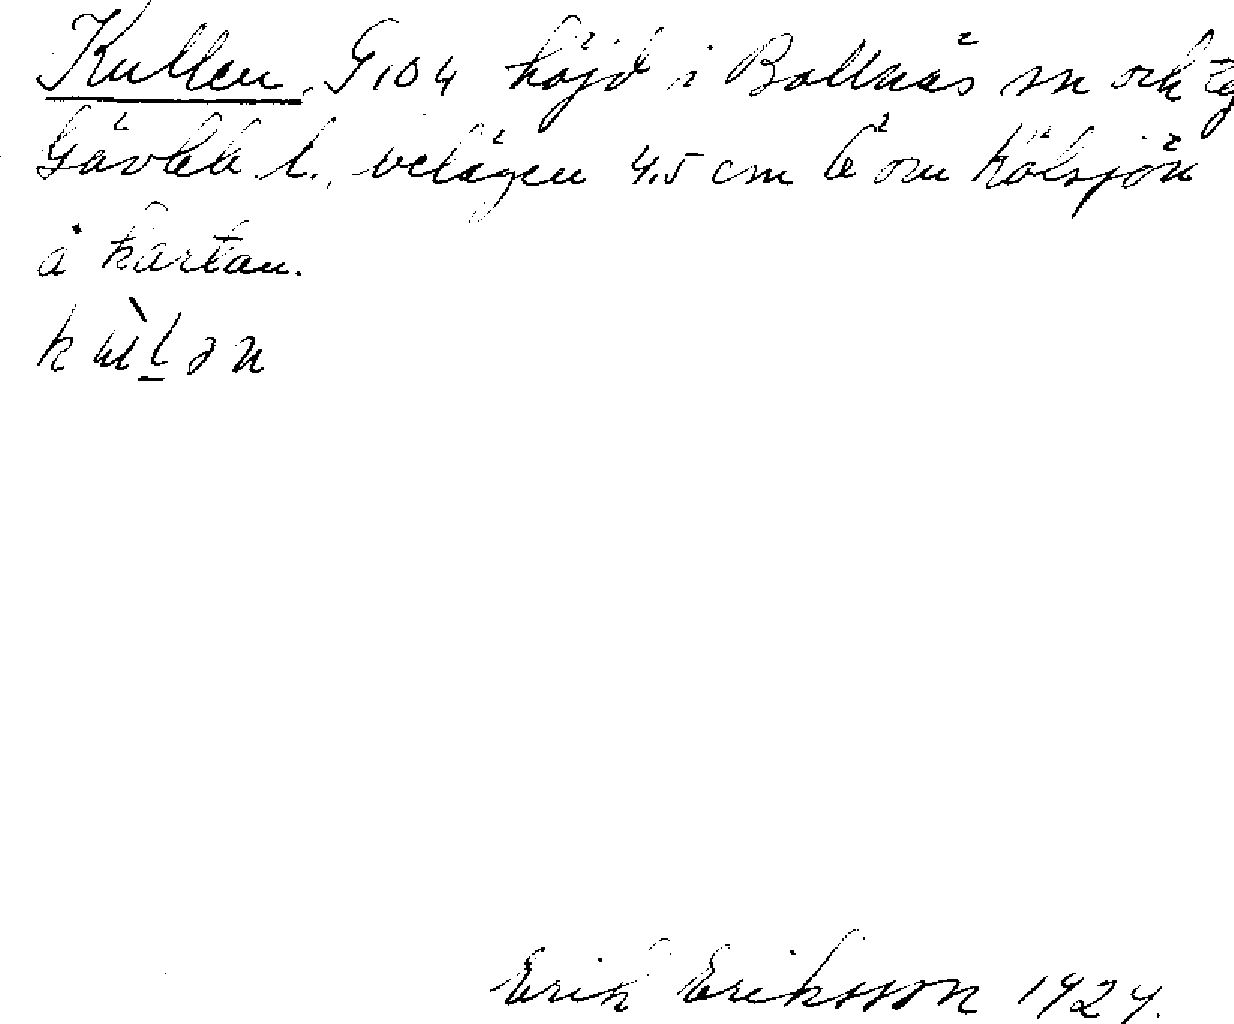 Kullen. G 104 höjd i Bollnäs sn och tg
Gävleb. l., belägen 4.5 cm ö om Hölsjön
å kartan.
Erik Eriksson 1924.